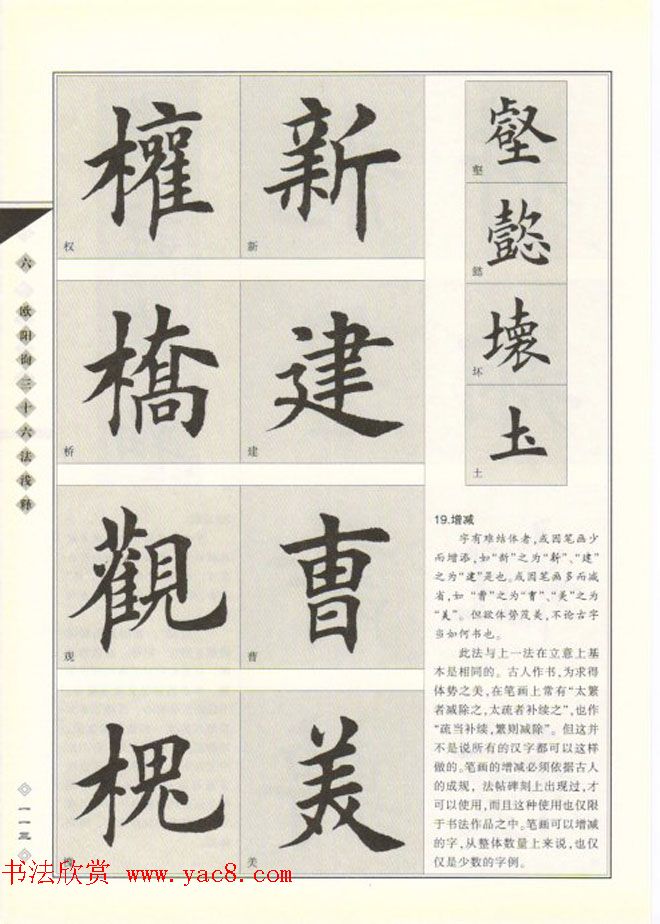 六 欧阳询三十六法浅释
一一三
權 新
权 新
橋 建
桥 建
觀 曹
观 曹
槐 美
美
壑
壑
懿
懿
壞
坏
土
土
19.增减
字有难结体者,或因笔画少
而增添,如“新”之为“新”、“建”
之为“建”是也。或因笔画多而减
省,如“曹”之为“曺”、“美”之为
“美”。但欲体势茂美,不论古字
当如何书也。
此法与上一法在立意上基
本是相同的。古人作书,为求得
体势之美,在笔画上常有“太繁
者减除之,太疏者补续之”,也作
“疏当补续,繁则减除”。但这并
不是说所有的汉字都可以这样
做的。笔画的增减必须依据古人
的成规,法帖碑刻上出现过,才
可以使用,而且这种使用也仅限
于书法作品之中。笔画可以增减
的字,从整体数量上来说,也仅
仅是少数的字例。
书法欣赏 www.yac8.com